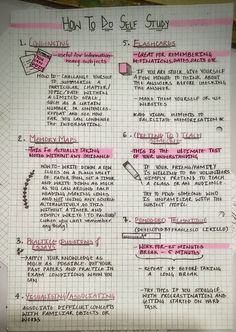 HOW TO DO SELF STUDY
1. CONDENSING
useful for information-
heavy subjects
HOW TO - CHALLENGE YOURSELF
TO SUMMARISE A
PARTICULAR CHAPTER/
TOPIC/TEXT INTO
A LIMITED SPACE
SUCH AS A CERTAIN
NUMBER OF SENTENCES.
REPEAT AND SEE HOW
FAR YOU CAN CONDENSE
THE INFORMATION.
2. MEMORY MAPS
THIS IS ACTUALLY TAKING
NOTES WITHOUT ANY GUIDANCE!
HOW TO - WRITE DOWN A
ON A PLAIN SHEET
OF PAPER THEN, SET A TIMER
AND WRITE DOWN AS MUCH
AS YOU CAN AROUND IT,
MAKING LINKS
AND NOT USING ANY SOURCE
ALTERNATIVELY DO THIS
WITHOUT A TIMER AND
SIMPLY WRITE 'TIL
YOU CANT REMEMBER
ANY MORE!
3. PRACTISE QUESTIONS /
ESSAYS
- APPLY YOUR KNOWLEDGE AS
MUCH AS POSSIBLE. BUY
PAST PAPERS AND PRACTISE IN
EXAM CONDITIONS WHEN YOU
CAN
4. VISUALISING/ASSOCIATING
ASSOCIATE DIFFICULT CONCEPTS
WITH FAMILIAR OBJECTS OR
WORDS
5. FLASHCARDS
- GREAT FOR REMEMBERING
DEFINITIONS, DATES, FACTS ETC
- IF YOU ARE STUCK, GIVE YOURSELF
A FEW MINUTES TO THINK ABOUT
THE ANSWER BEFORE CHECKING
THE ANSWER
- MAKE THEM YOURSELF OR USE
WEBSITES
- ADD VISUAL ELEMENTS TO
FACILITATE MEMORISATION
6. (PRETEND TO) TEACH
SOMEONE
- THIS IS THE ULTIMATE TEST
OF YOUR UNDERSTANDING
- IF YOUR FRIEND/FAMILY
IS WILLING TO BE VOLUNTEERS
THEN PRETEND TO TEACH
A CLASS OR AN AUDIENCE
- TRY TO FIND SOMEONE WHO
IS UNFAMILIAR WITH THE
SUBJECT MATTER
7. POMODORO TECHNIQUE
(DEVELOPED BY FRANCESCO CIRILLO)
WORK FOR - 25 MINUTES
BREAK - 5 MINUTES
- REPEAT X4 BEFORE TAKING
A LONG BREAK
- TRY THIS IF YOU STRUGGLE
WITH PROCRASTINATION AND
GETTING STARTED ON HARD
TASK